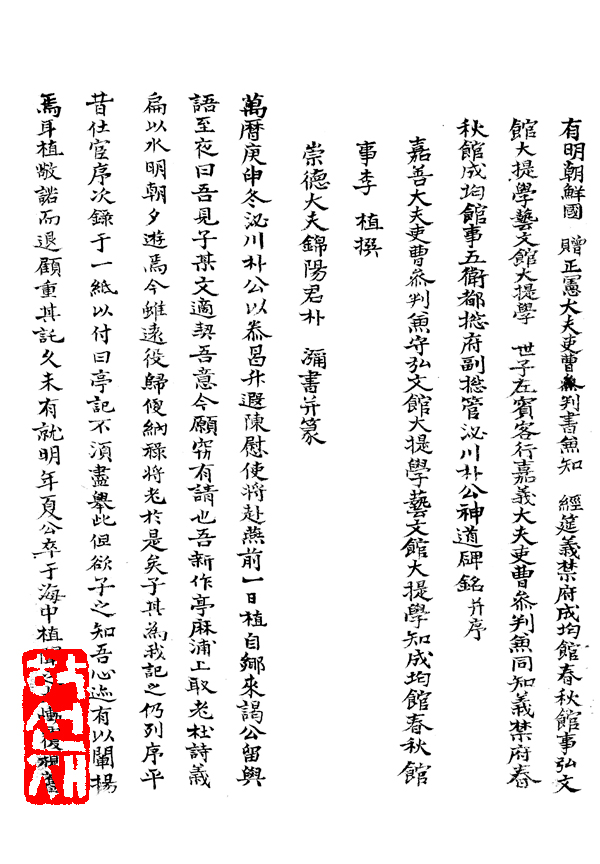 有明朝鮮國 贈正憲大夫吏曹叅判書兼知 經筵義禁府成均館春秋館事弘文
館大提學藝文館大提學 世子左賓客行嘉義大夫吏曹叅判兼同知義禁府春
秋館成均館事五衛都摠府副摠管泌川朴公神道碑銘并序
嘉善大夫吏曹叅判兼守弘文館大提學藝文館大提學知成均館春秋館
事李 植撰
崇德大夫錦陽君朴 瀰書并篆
萬曆庚申冬泌川朴公以泰昌升遐陳慰使將赴燕前一日植自鄉來謁公留與
語至夜曰吾見子某文適契吾意今願竊有請也吾新作亭麻浦上取老杜詩義
扁以水明朝夕遊焉今雖遠役歸便納祿將老於是矣子其為我記之仍列序平
昔仕宦序次錄于一紙以付曰亭記不須盡舉此但欲子之知吾心迹有以闡揚
焉耳植敬諾而退顧重其託久未有就明年夏公卒于海中植